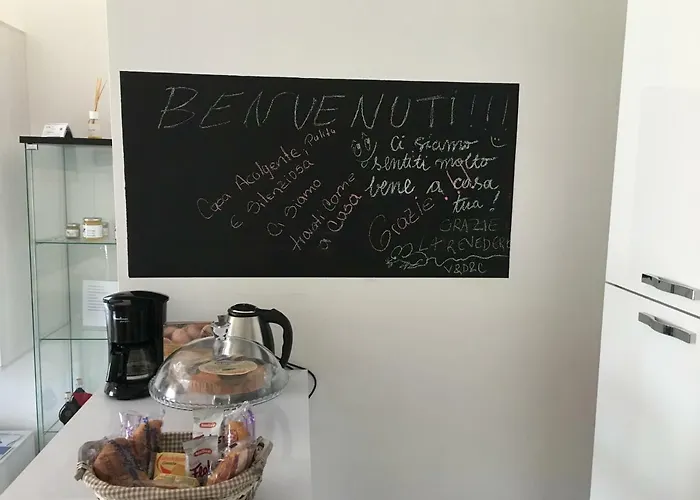 BENVENUTI!!!
Casa Acolgente Pulita
E Silenziosa
Ci Siamo
trovati Come
a Casa
Ci siamo
sentiti molto
bene a casa
tua!
Grazie
GRAZIE